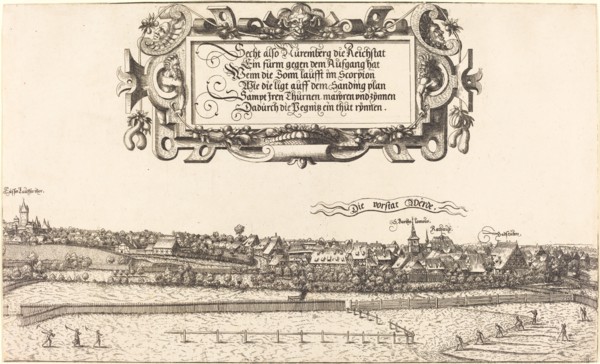 Secht also Nüremberg die Reichstat
Ein fürm gegen dem Aüfgang hat
Wenn die Sonn laüfft im Scorpion
Wie die ligt aüff dem Sandnig plan
Sampt Jren Thürnen maüren vnd zÿnnen
Dadürch die Pegnitz ein thüt rÿnnen.
Die vorstat Wörde.